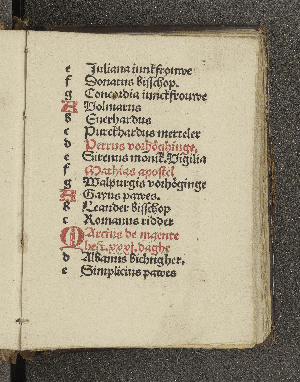 e Juliana iunckfrouwe
f Donatus bisschop.
g Concordia iunckfrouwe
A Volmarus
b Euerhardus
c Purckhardus merteler
d Petrus vorhöginge.
e Sirenus monik. Vigilia
f Mathias apostel
g Walpurgis vorhöginge
A Gayus pawes.
b Leander bisschop
c Romanus ridder
MArcius de maente
hest. xxxi. daghe
d Albanus bichtigher.
e Simplicius pawes